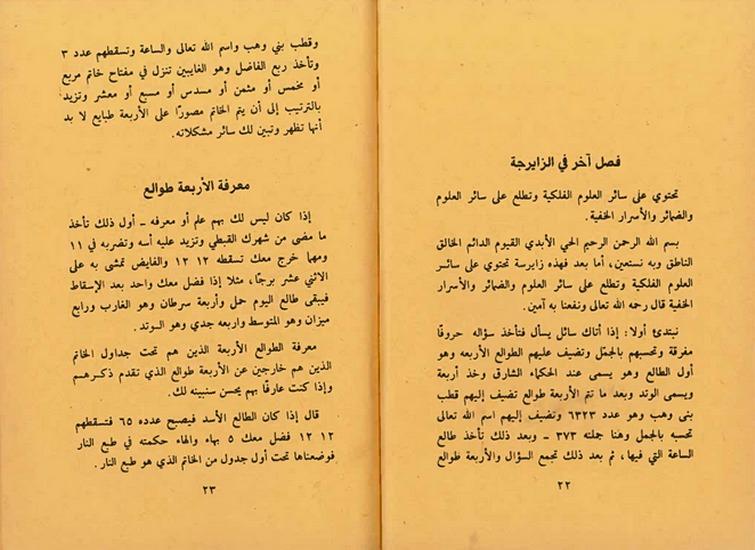 فصل آخر في الزايرجة
تحتوي على سائر العلوم الفلكية وتطلع على سائر العلوم
والضمائر والأسرار الخفية.
بسم الله الرحمن الرحيم الحي الأبدي القيوم الدائم الخالق
الناطق وبه نستعين، أما بعد فهذه زايرسة تحتوي على سائر
العلوم الفلكية وتطلع على سائر العلوم والضمائر والأسرار
الخفية قال رحمه الله تعالى ونفعنا به آمين.
نبتدئ أولا: إذا أتاك سائل يسأل فتأخذ سؤاله حروفًا
مفرقة وتحسبهم بالجمّل وتضيف عليهم الطوالع الأربعه وهو
أول الطالع وهو يسمى عند الحكماء الشارق وخذ أربعة
ويسمى الوتد وبعد ما تتم الأربعة طوالع تضيف إليهم قطب
بنى وهب وهو عدد ٦٣٢٣ وتضيف إليهم اسم الله تعالى
تحسبه بالجمل وهنا جملته ٣٧٣ ـ وبعد ذلك تأخذ طالع
الساعة التي فيها، ثم بعد ذلك تجمع السؤال والأربعة طوالع
٢٢
وقطب بني وهب واسم الله تعالى والساعة وتسقطهم عدد ٣
وتأخذ ربع الفاضل وهو الغايبين تنزل في مفتاح خاتم مربع
أو مخمس أو مثمن أو مسدس أو مسبع أو معشر وتزيد
بالترتيب إلى أن يتم الخاتم مصورًا على الأربعة طبايع لا بد
أنها تظهر وتبين لك سائر مشكلاته.
معرفة الأربعة طوالع
إذا كان ليس لك بهم علم أو معرفه ـ أول ذلك تأخذ
ما مضى من شهرك القبطي وتزيد عليه أسه وتضربه في ١١
ومهما خرج معك تسقطه ١٢ ١٢ والفايض تمشى به على
الاثني عشر برجًا، مثلا إذا فضل معك واحد بعد الإسقاط
فيبقى طالع اليوم حمل وأربعة سرطان وهو الغارب ورابع
ميزان وهو المتوسط واربعه جدي وهو الـوتد.
معرفة الطوالع الأربعة الذين هم تحت جداول الخاتم
الذين هم خارجين عن الأربعة طوالع الذي تقدم ذكرهـم
وإذا كنت عارفًا بهم يحسن سنبينه لك.
قال إذا كان الطالع الأسد فيصبح عدده ٦٥ فتسقطهم
١٢ ١٢ فضل معك ٥ بهاء والهاء حكمته في طبع النار
فوضعناها تحت أول جدول من الخاتم الذي هو طبع النار.
٢٣